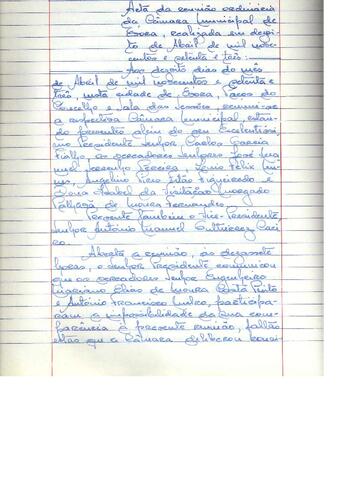 Acta da reunião ordinária
da Câmara Municipal de
Évora, realizada em dezoi-
to de Abril de mil nove-
centos e setenta e três:
Aos dezoito dias do mês
de Abril de mil novecentos e setenta e
três, nesta cidade de Évora, Paços do
Concelho e Sala das Sessões, reuniu-se
a respectiva Câmara Municipal, estan-
do presentes além do seu Excelentíssi-
mo Presidente Senhor Carlos Garcia
Fialho, os vereadores senhores José Ma-
nuel Pereira, Félix
Angelino e
Dona Isabel da Visitação Morgado
de Moura Fernandes.
Presente também o Vice-Presidente
Senhor António Manuel Gutierrez
Aberta a reunião, às dezassete
horas, o senhor Presidente comunicou
que os vereadores senhor Engenheiro
Mariano Elias de Moura Costa Pinto
e António Francisco participa-
ram a impossibilidade da sua com-
parência à presente reunião, faltas
estas que a Câmara deliberou consi-